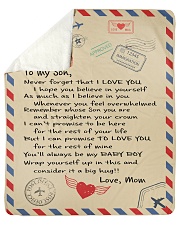 To my Son,
Never forget that I LOVE YOU
I hope you believe in yourself
As much as I believe in you
Whenever you feel overwhelmed
Remember whose Son you are
and straighten your crown
I can't promise to be here
for the rest of your life
But I can promise TO LOVE YOU
for the rest of mine
You'll always be my BABY BOY
Wrap yourself up in this and
consider it a big hug!!
Love, Mom